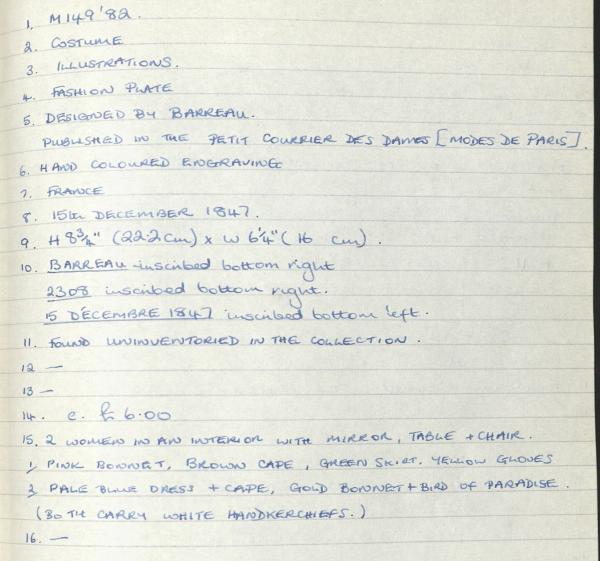 1. M149'82.
2. COSTUME
3. ILLUSTRATIONS.
4. FASHION PLATE
5. DESIGNED BY BARREAU.
PUBLISHED IN THE PETIT COURRIER DES DAMES [MODES DE PARIS].
6. HAND COLOURED ENGRAVING
7. FRANCE
8. 15th DECEMBER 1847.
9. H 8¾" (22.2cm) x W 6¼" (16 cm).
10. BARREAU inscribed bottom right
2308 inscribed bottom right.
15 DÉCEMBRE 1847 inscribed bottom left.
11. FOUND UNINVENTORIED IN THE COLLECTION.
12 —
13 —
14. c. £6.00
15. 2 WOMEN IN AN INTERIOR WITH MIRROR, TABLE + CHAIR.
1, PINK BONNET, BROWN CAPE, GREEN SKIRT. YELLOW GLOVES
2, PALE BLUE DRESS + CAPE, GOLD BONNET + BIRD OF PARADISE.
(BOTH CARRY WHITE HANDKERCHIEFS.)
16. —